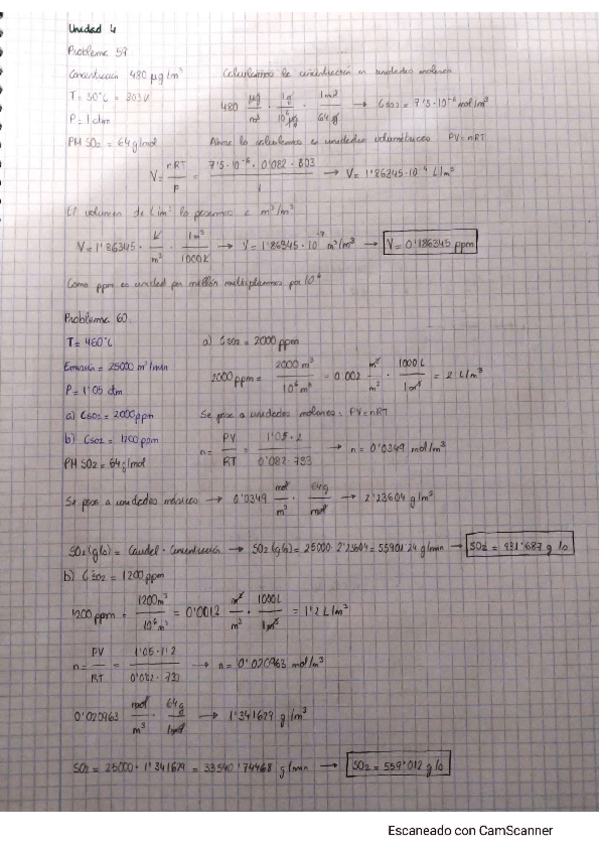 Unidad 4
Problema 59
Concentración 480 μg/m³ Calculamos la concentración en unidades molares
T = 30°C = 303K 480 μg/m³ · 1g/10⁶μg · 1mol/64g → CSO2 = 7'5·10⁻⁶ mol/m³
P = 1 atm
PM SO2 = 64 g/mol Ahora lo calculamos en unidades volumétricas PV=nRT
V = nRT/P = 7'5·10⁻⁶ · 0'082 · 303/1 → V = 1'86345·10⁻⁴ L/m³
El volumen de L/m³ lo pasamos a m³/m³
V = 1'86345 · L/m³ · 1m³/1000L → V = 1'86345·10⁻⁷ m³/m³ → V = 0'186345 ppm
Como ppm es unidad por millón multiplicamos por 10⁶
Problema 60
T = 460°C a) CSO2 = 2000 ppm
Emisión = 25000 m³/min 2000 ppm = 2000 m³/10⁶ m³ = 0'002 m³/m³ · 1000L/1m³ = 2 L/m³
P = 1'05 atm
a) CSO2 = 2000 ppm Se pasa a unidades molares: PV=nRT
b) CSO2 = 1200 ppm n = PV/RT = 1'05·2/0'082·733 → n = 0'0349 mol/m³
PM SO2 = 64 g/mol
Se pasa a unidades másicas → 0'0349 mol/m³ · 64g/mol → 2'23604 g/m³
SO2 (g/s) = Caudal · Concentración → SO2 (g/s) = 25000 · 2'23604 = 55901'24 g/min → SO2 = 931'687 g/s
b) CSO2 = 1200 ppm
1200 ppm = 1200m³/10⁶m³ = 0'0012 m³/m³ · 1000L/1m³ = 1'2 L/m³
n = PV/RT = 1'05·1'2/0'082·733 → n = 0'020963 mol/m³
0'020963 mol/m³ · 64g/1mol → 1'341629 g/m³
SO2 = 25000 · 1'341629 = 33540'74468 g/min → SO2 = 559'012 g/s
Escaneado con CamScanner